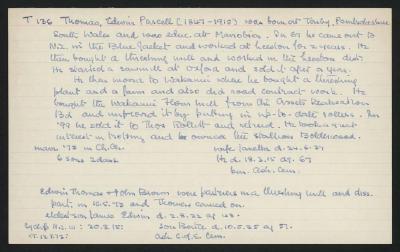 T 136 Thomas, Edwin Purcell (1847-1915) was born at Tenby, Pembrokeshire
South Wales and was educ. at Manorbier. In 67 he came out to
N.Z. in the Blue Jacket and worked at Leeston for 2 years. He
then bought a threshing mill and worked in the Leeston dist.
He started a sawmill at Oxford and sold it after a year.
He then moved to Wakanui where he bought a threshing
plant and a farm and also did road contract work. He
bought the Wakanui Flour Mill from the Assets Realisation
Bd and improved it by putting in up-to-date rollers. In
'99 he sold it to Thos Rollitt and retired. He took a great
interest in trotting and owned the stallion Bolderwood.
marr '73 in Ch.Ch. wife Janetta d. 24.6.27
6 sons 2 daus H d. 18.3.15 ag. 67
bur. Ash. Cem.
Edwin Thomas & John Brown were partners in a threshing mill and diss.
part. in 10.5.73 and Thomas carried on.
eldest son James Edwin d. 2.8.22 ag 48.
Cyclop N.Z. III : 20.3.15: son d. 10.5.25 ag 51.
Ash C of E Cem.